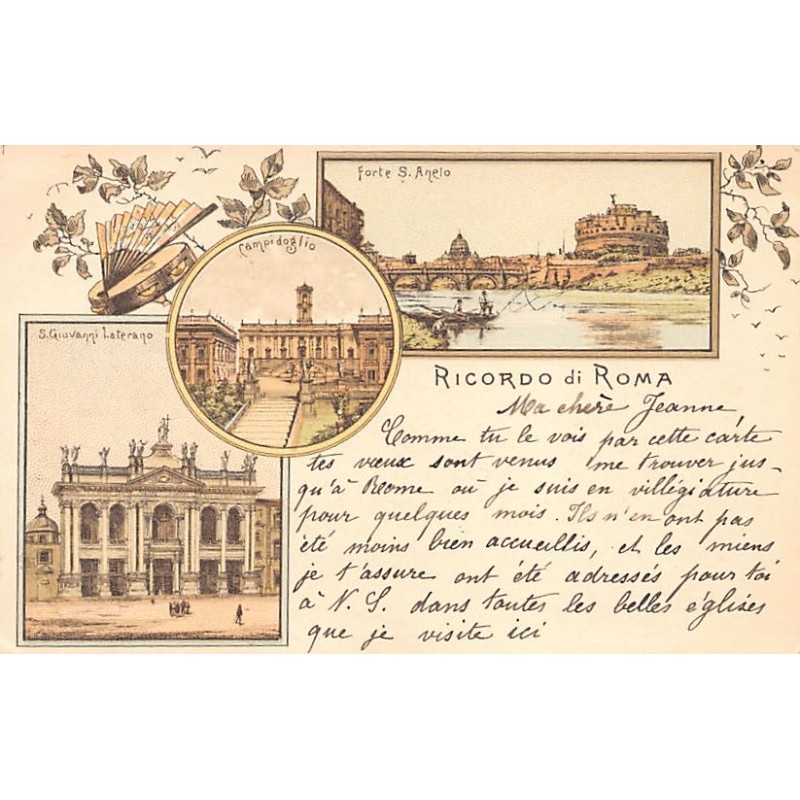 Forte S. Anelo
Campidoglio
S. Giovanni Laterano
RICORDO di ROMA
Ma chère Jeanne,
Comme tu le vois par cette carte
tes vœux sont venus me trouver jus-
qu'à Rome où je suis en villégiature
pour quelques mois. Ils n'en ont pas
été moins bien accueillis, et les miens
je t'assure ont été adressés pour toi
à N. S. dans toutes les belles églises
que je visite ici